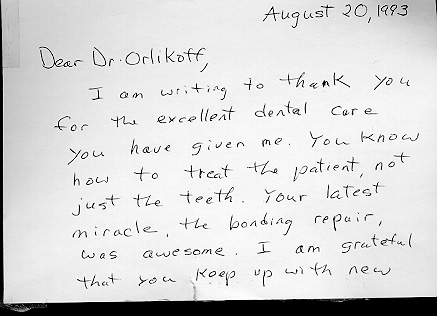 August 20, 1993
Dear Dr. Orlikoff,
I am writing to thank you
for the excellent dental care
you have given me. You know
how to treat the patient, not
just the teeth. Your latest
miracle, the bonding repair,
was awesome. I am grateful
that you keep up with new